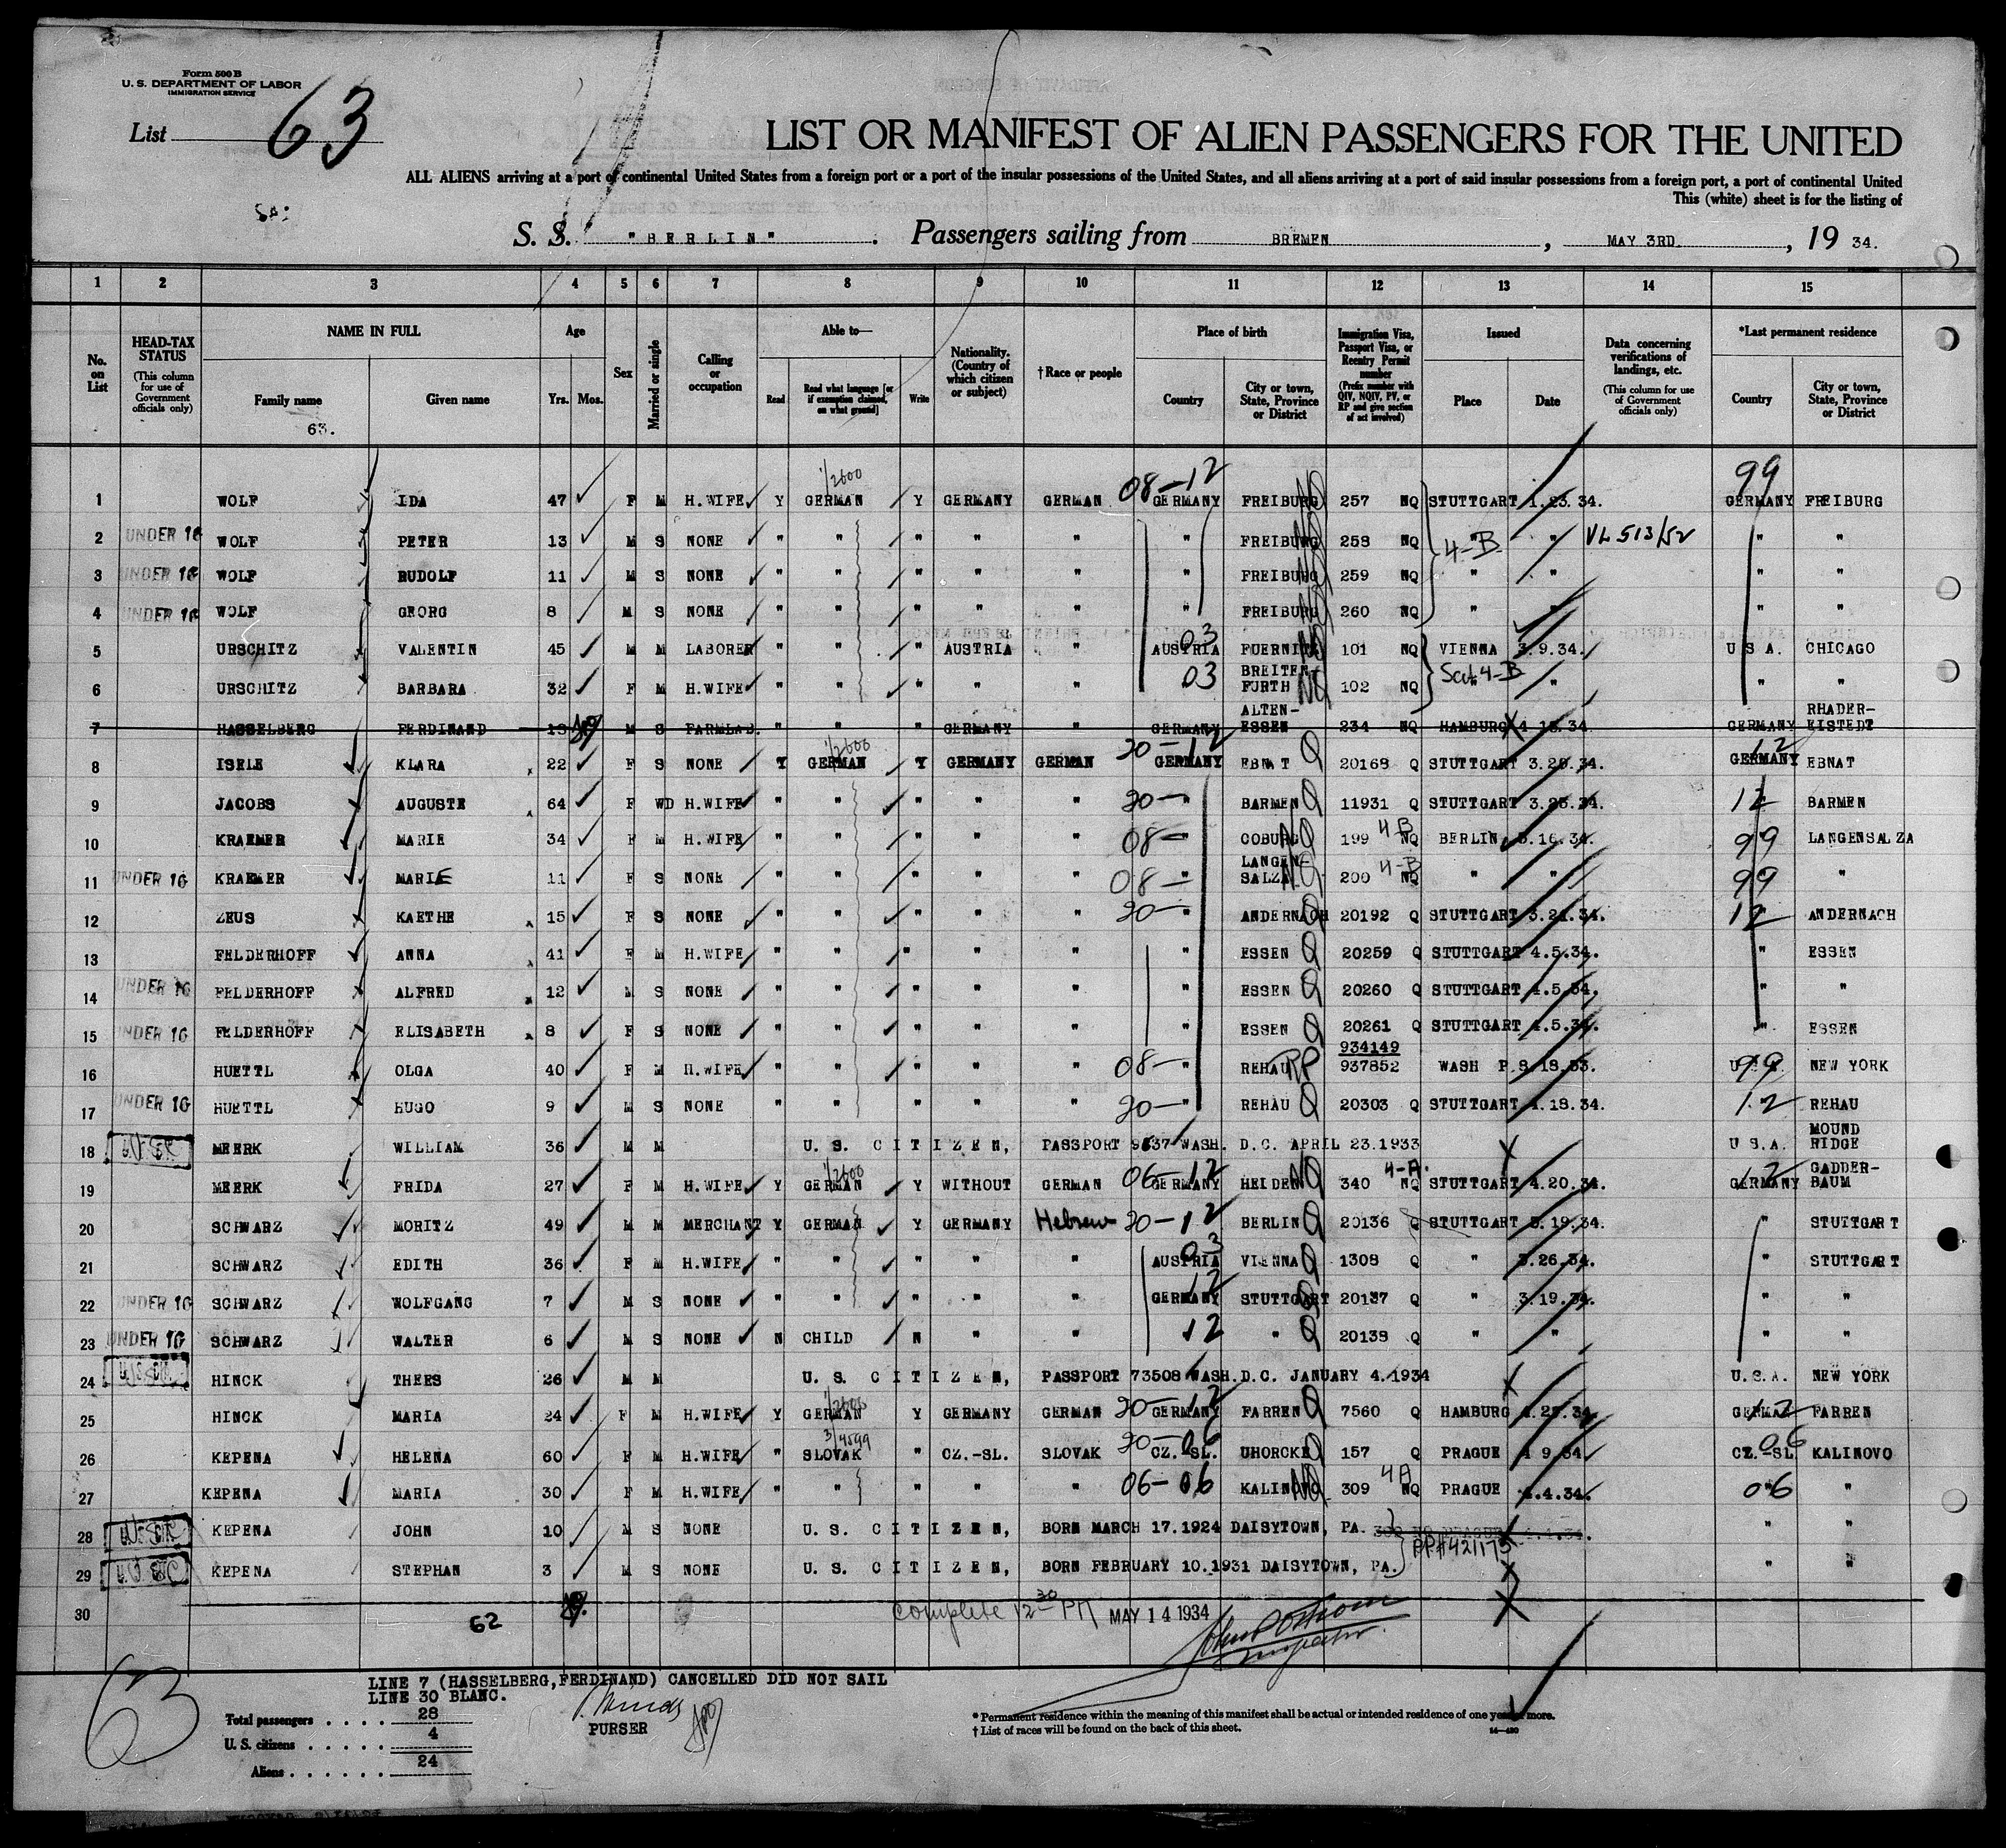 Form 500 B
U. S. DEPARTMENT OF LABOR
IMMIGRATION SERVICE
List 63
LIST OR MANIFEST OF ALIEN PASSENGERS FOR THE UNITED
ALL ALIENS arriving at a port of continental United States from a foreign port or a port of the insular possessions of the United States, and all aliens arriving at a port of said insular possessions from a foreign port, a port of continental United
This (white) sheet is for the listing of
S. S. "BERLIN". Passengers sailing from BREMEN, MAY 3RD., 19 34.
1 2 3 4 5 6 7 8 9 10 11 12 13 14 15
No. on List
HEAD-TAX STATUS (This column for use of Government officials only)
NAME IN FULL Family name 63. Given name
Age Yrs. Mos.
Sex
Married or single
Calling or occupation
Able to— Read Read what language [or if exemption claimed, on what ground] Write
Nationality. (Country of which citizen or subject)
†Race or people
Place of birth Country City or town, State, Province or District
Immigration Visa, Passport Visa, or Reentry Permit number (Prefix number with QIV, NQIV, PV, or RP and give section of act involved)
Issued Place Date
Data concerning verifications of landings, etc. (This column for use of Government officials only)
*Last permanent residence Country City or town, State, Province or District
1 WOLF IDA 47 F M H.WIFE Y GERMAN Y GERMANY GERMAN 08-12 GERMANY FREIBURG 257 NQ STUTTGART 1.23.34. 99 GERMANY FREIBURG
2 UNDER 16 WOLF PETER 13 M S NONE " " " " " " FREIBURG 258 NQ 4-B " " VL 513/52 " "
3 UNDER 16 WOLF RUDOLF 11 M S NONE " " " " " " FREIBURG 259 NQ " " " "
4 UNDER 16 WOLF GEORG 8 M S NONE " " " " " " FREIBURG 260 NQ " " " "
5 URSCHITZ VALENTIN 45 M M LABORER " " " AUSTRIA " 03 AUSTRIA FUERNITZ 101 NQ VIENNA 3.9.34. U S A. CHICAGO
6 URSCHITZ BARBARA 32 F M H.WIFE " " " " " 03 BREITEN-FURTH NQ 102 NQ Sct 4-B " " " "
7 HASSELBERG FERDINAND M S FARMLAB. " " " GERMANY " GERMANY ALTEN-ESSEN 234 NQ HAMBURG GERMANY RHADER-EISTEDT
8 ISELE KLARA 22 F S NONE Y GERMAN Y GERMANY GERMAN 20-12 GERMANY EBNAT Q 20168 Q STUTTGART 3.20.34. 12 GERMANY EBNAT
9 JACOBS AUGUSTE 64 F WD H.WIFE " " " " " 20- " BARMEN Q 11931 Q STUTTGART 3.23.34. 12 BARMEN
10 KRAEMER MARIE 34 F M H.WIFE " " " " " 08- COBURG 199 4-B NQ BERLIN 3.16.34. 99 LANGENSALZA
11 UNDER 16 KRAEMER MARIE 11 F S NONE " " " " " 08- LANGEN SALZA 200 4-B NQ " " 99 "
12 ZEUS KAETHE 15 F S NONE " " " " " 20- " ANDERNACH 20192 Q STUTTGART 3.21.34. 12 ANDERNACH
13 FELDERHOFF ANNA 41 F M H.WIFE " " " " " " ESSEN Q 20259 Q STUTTGART 4.5.34. " ESSEN
14 UNDER 16 FELDERHOFF ALFRED 12 M S NONE " " " " " " ESSEN Q 20260 Q STUTTGART 4.5.34. " "
15 UNDER 16 FELDERHOFF ELISABETH 8 F S NONE " " " " " " ESSEN Q 20261 Q STUTTGART 4.5.34. " ESSEN
16 HUETTL OLGA 40 F M H.WIFE " " " " " 08- " REHAU RP 934149 937852 WASH P. 8.18.33. 99 NEW YORK
17 UNDER 16 HUETTL HUGO 9 M S NONE " " " " " 20- " REHAU Q 20303 Q STUTTGART 4.18.34. 12 REHAU
18 MEERK WILLIAM 36 M M U. S. CITIZEN, PASSPORT WASH. D.C. APRIL 23.1933 U S A. MOUND RIDGE
19 MEERK FRIDA 27 F M H.WIFE Y GERMAN Y WITHOUT GERMAN 06-12 GERMANY HEIDEN NQ 340 4-A. NQ STUTTGART 4.20.34. 12 GERMANY GADDER-BAUM
20 SCHWARZ MORITZ 49 M M MERCHANT Y GERMAN Y GERMANY Hebrew 20-12 BERLIN Q 20136 Q STUTTGART 3.19.34. " STUTTGART
21 SCHWARZ EDITH 36 F M H.WIFE " " " " " 03 AUSTRIA VIENNA Q 1308 Q " 3.26.34. STUTTGART
22 UNDER 16 SCHWARZ WOLFGANG 7 M S NONE " " " " " 12 GERMANY STUTTGART 20137 Q " 3.19.34. " "
23 UNDER 16 SCHWARZ WALTER 6 M S NONE N CHILD N " " 12 " Q 20138 Q " " " "
24 HINCK THEES 26 M M U. S. CITIZEN, PASSPORT 73508 WASH.D.C. JANUARY 4.1934 U.S.A. NEW YORK
25 HINCK MARIA 24 F M H.WIFE Y GERMAN Y GERMANY GERMAN 20-12 GERMANY FARREN Q 7560 Q HAMBURG 12 GERMANY FARREN
26 KEPENA HELENA 60 F M H.WIFE " SLOVAK " CZ.-SL. SLOVAK 20-06 CZ.-SL. UHORCKE 157 Q PRAGUE 4 9.34 06 CZ.-SL KALINOVO
27 KEPENA MARIA 30 F M H.WIFE " " " " " 06-06 KALINOVO 309 4A NQ PRAGUE 4.4.34. 06 "
28 KEPENA JOHN 10 M S NONE U. S. CITIZEN, BORN MARCH 17.1924 DAISYTOWN, PA. " "
29 KEPENA STEPHAN 3 M S NONE U. S. CITIZEN, BORN FEBRUARY 10.1931 DAISYTOWN, PA. PP#421175 " "
30
62 complete 12 30 PM MAY 14 1934
Inspector.
63
LINE 7 (HASSELBERG,FERDINAND) CANCELLED DID NOT SAIL
LINE 30 BLANC.
Total passengers . . . . 28
U. S. citizens . . . . . 4
Aliens . . . . . . 24
PURSER
* Permanent residence within the meaning of this manifest shall be actual or intended residence of one year or more.
† List of races will be found on the back of this sheet.